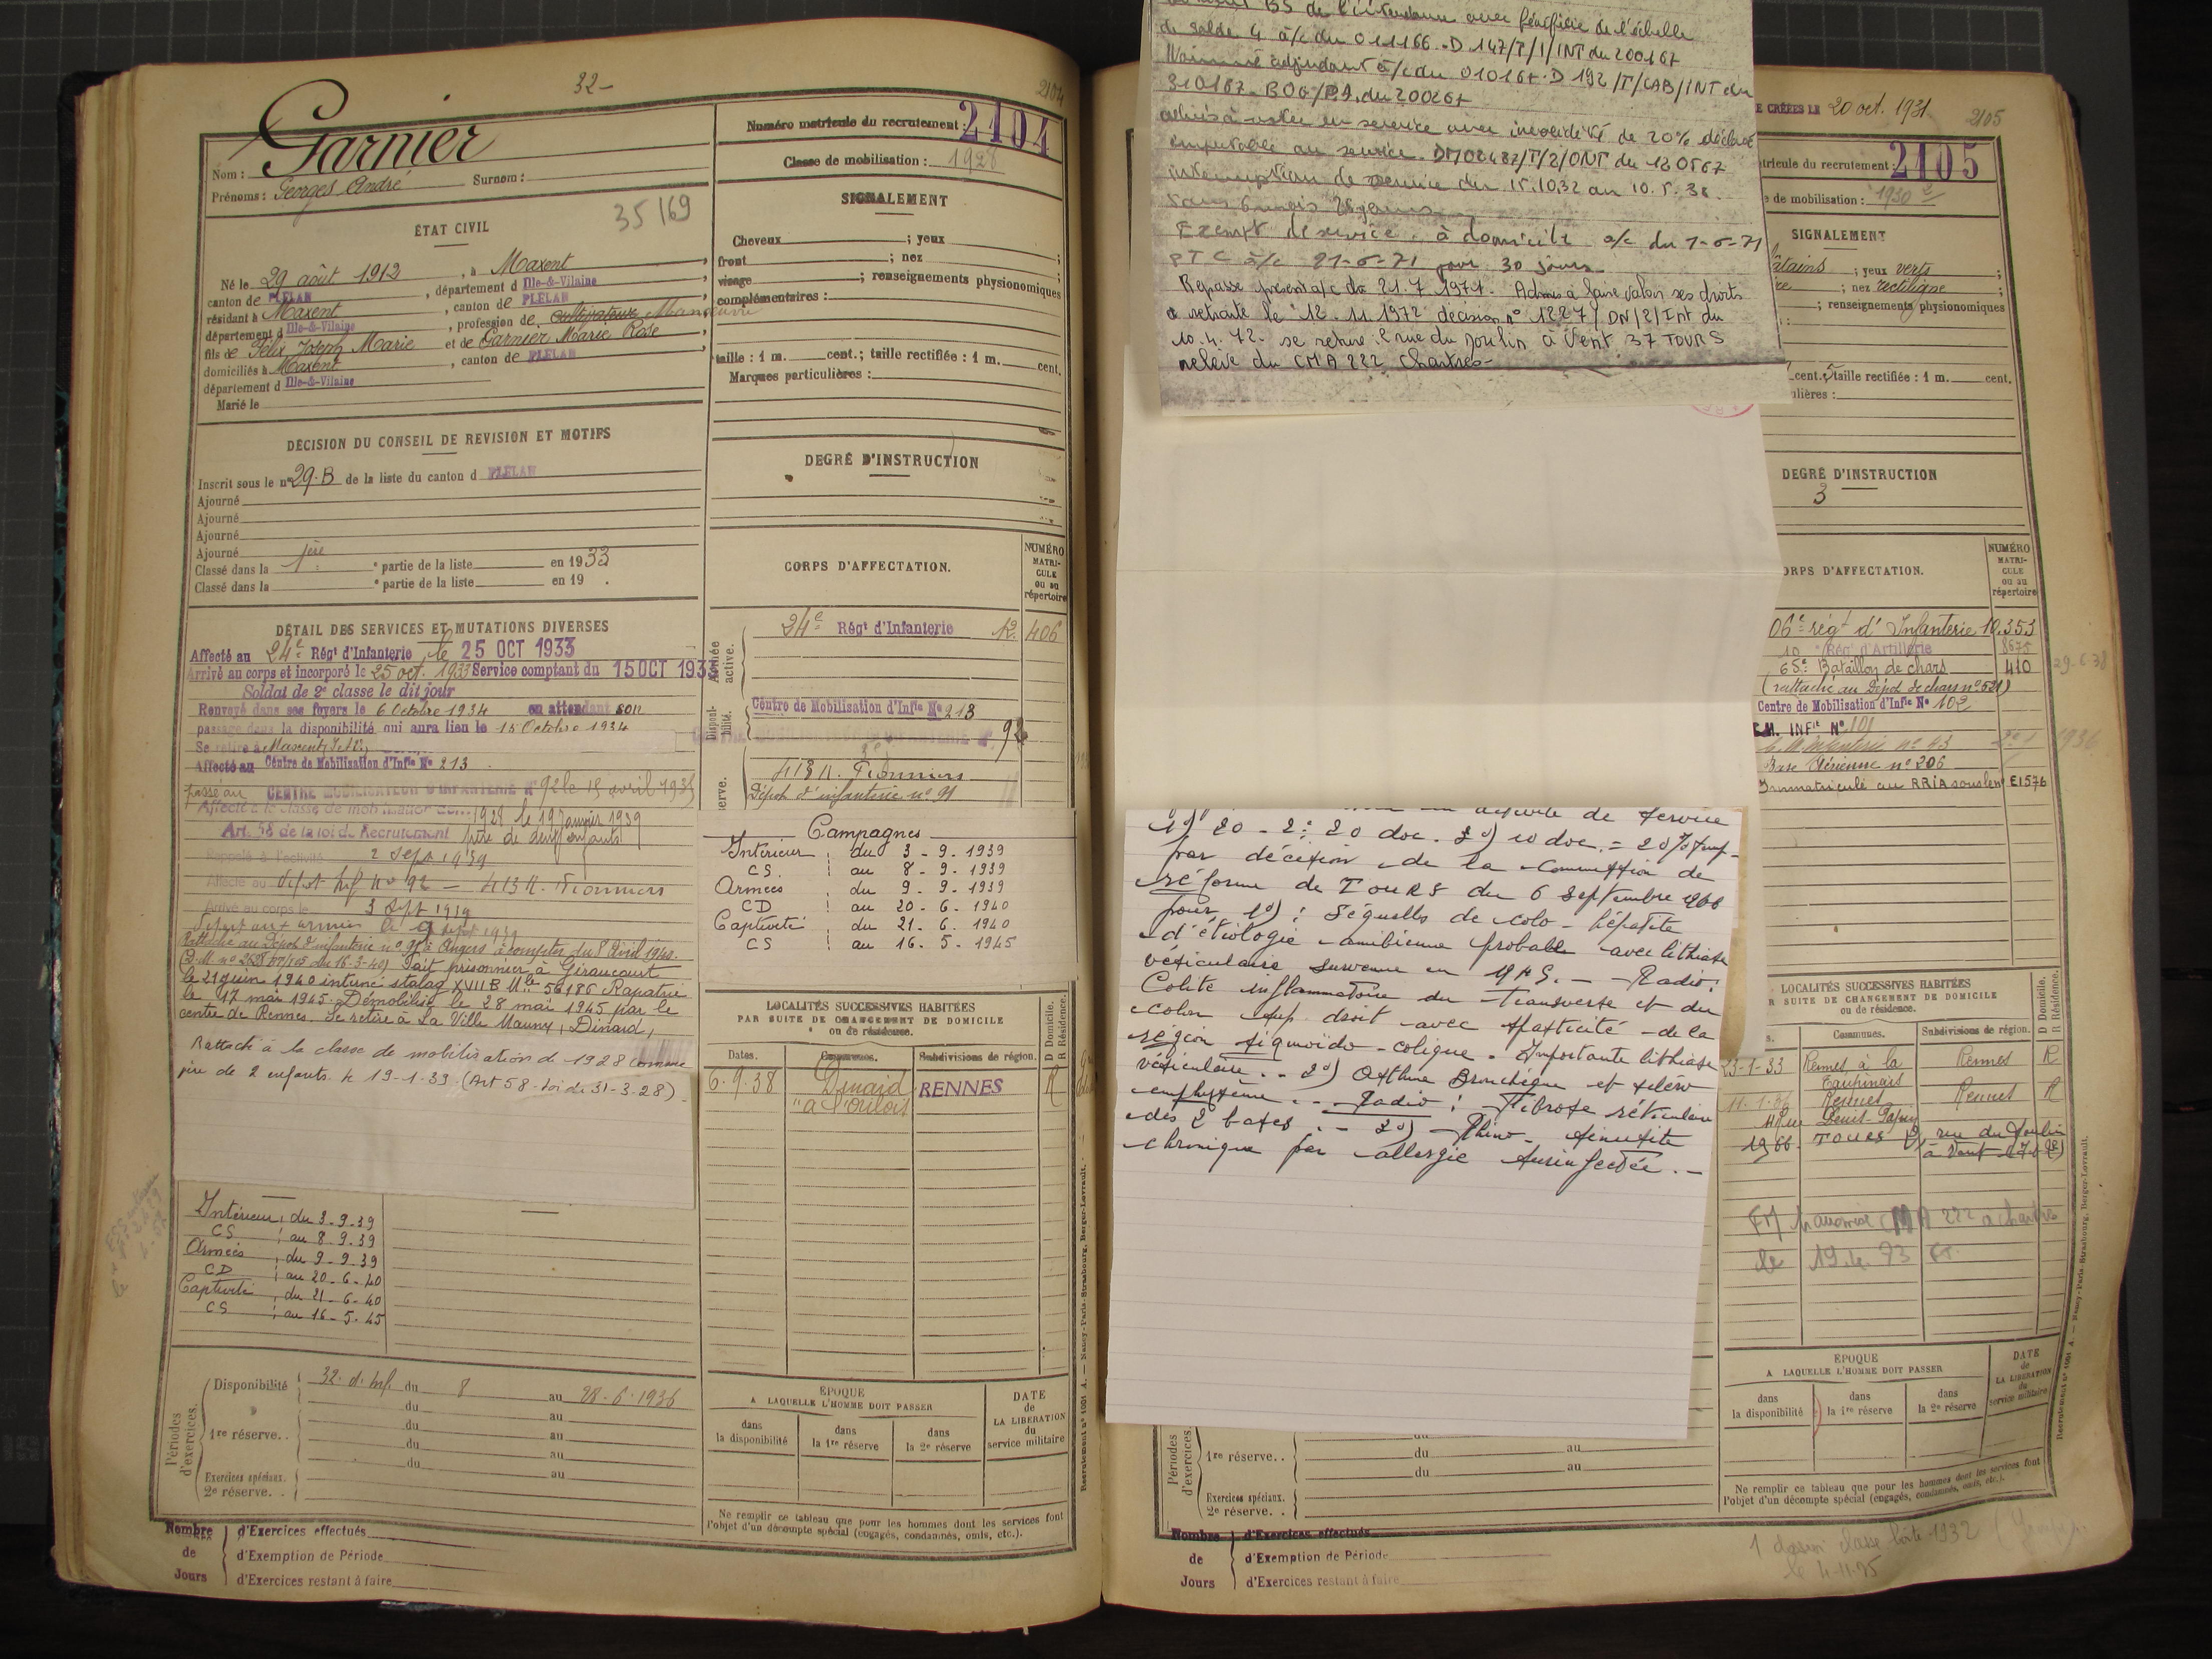 32-
2104
Garnier
Nom :
Prénoms : Georges André Surnom :
35/69
Numéro matricule du recrutement : 2104
Classe de mobilisation : 1928
ÉTAT CIVIL
Né le 29 août 1912, à Maxent
canton de PLÉLAN, département d Ille-&-Vilaine
résidant à Maxent, canton de PLÉLAN
département d Ille-&-Vilaine, profession de cultivateur Manœuvre
fils de Félix Joseph Marie et de Garnier Marie Rose
domiciliés à Maxent, canton de PLÉLAN
département d Ille-&-Vilaine
Marié le
SIGNALEMENT
Cheveux ; yeux ;
front ; nez ;
visage ; renseignements physionomiques
complémentaires :
taille : 1 m. cent.; taille rectifiée : 1 m. cent.
Marques particulières :
DÉCISION DU CONSEIL DE REVISION ET MOTIFS
Inscrit sous le n° 29.B de la liste du canton d PLÉLAN
Ajourné
Ajourné
Ajourné
Ajourné
Classé dans la 1ère partie de la liste en 1933
Classé dans la e partie de la liste en 19 .
DEGRÉ D'INSTRUCTION
CORPS D'AFFECTATION.
NUMÉRO MATRI-CULE ou au répertoire
Armée active.
24e Régt d'Infanterie 12. 406
Disponi-bilité.
Centre de Mobilisation d'Infie No 213
92
413 R. Pionniers
Dépôt d'infanterie n° 91
DÉTAIL DES SERVICES ET MUTATIONS DIVERSES
Affecté au 24e Régt d'Infanterie le 25 OCT 1933
Arrivé au corps et incorporé le 25 oct. 1933 Service comptant du 15 OCT 1933
Soldat de 2e classe le dit jour
Renvoyé dans ses foyers le 6 Octobre 1934 en attendant son
passage dans la disponibilité qui aura lieu le 15 Octobre 1934
Se retire à Maxent
Affecté au Centre de Mobilisation d'Infie No 213
passé au CENTRE MOBILISATEUR D'INFANTERIE N° 92 le 15 avril 1935
Affecté à la classe de mobilisation de 1928 le 19 Janvier 1939
Art. 58 de la loi de Recrutement père de deux enfants
Rappelé à l'activité 2 Sept 1939
Affecté au dépôt Inf n° 92 - 413 R. Pionniers
Arrivé au corps le 3 Sept 1939
Départ aux armées le 9 sept 1939
Rattaché au Dépôt d'infanterie n° 91 à Angers à compter du 8 Avril 1940.
Fait prisonnier à Giraucourt
le 21 juin 1940 interné stalag XVII B Mle 56186 Rapatrié
le 17 mai 1945. Démobilisé le 28 mai 1945 par le
centre de Rennes. Se retire à La Ville Mauny, Dinard,
Rattaché à la classe de mobilisation de 1928 comme
père de 2 enfants le 19-1-39 (Art 58 - loi du 31-3-28).
Campagnes
Intérieur : du 3 - 9 - 1939
CS. : au 8 - 9 - 1939
Armées : du 9 - 9 - 1939
CD : au 20 - 6 - 1940
Captivité : du 21 - 6 - 1940
CS : au 16 - 5 - 1945
Intérieur : du 3-9-39
CS : au 8-9-39
Armées : du 9-9-39
CD : au 20-6-40
Captivité : du 21-6-40
CS : au 16-5-45
LOCALITÉS SUCCESSIVES HABITÉES
PAR SUITE DE CHANGEMENT DE DOMICILE
ou de résidence.
D Domicile. R Résidence.
Dates. Communes. Subdivisions de région.
6.9.38 Dinard RENNES R
Périodes d'exercices.
Disponibilité 32. d. Inf. du 8 au 28-6-1936
du au
1re réserve.. du au
du au
du au
Exercices spéciaux. 2e réserve..
ÉPOQUE
A LAQUELLE L'HOMME DOIT PASSER
dans la disponibilité
dans la 1re réserve
dans la 2e réserve
DATE de LA LIBÉRATION du service militaire
Ne remplir ce tableau que pour les hommes dont les services font
l'objet d'un décompte spécial (engagés, condamnés, omis, etc.).
Nombre de Jours
d'Exercices effectués
d'Exemption de Période
d'Exercices restant à faire
Recrutement n° 1001 A. — Nancy-Paris-Strasbourg, Berger-Levrault.
BS de l'intendance avec bénéfice de l'échelle
de solde 4 à/c du 011166. D 147/T/1/INT du 200167
Nommé adjudant à/c du 010167. D 192/T/CAB/INT du
310167. BOG/PA. du 200267
admis à rester en service avec invalidité de 20% déclaré
imputable au service. DM02487/T/2/ONT du 120567
interruption de service du 15.10.32 au 10.5.36.
Exempt de service à domicile a/c du 1-6-71
PTC à/c 21-6-71 pour 30 jours
Repasse présent a/c du 21.7 1971. Admis à faire valoir ses droits
à retraite le 12.11.1972 décision n° 1227/DN/2/Int du
10.4.72. se retire 2 rue du Moulin à Vent 37 TOURS
relève du CMA 222 Chartres-
1°) 20 - 2: 20 doc. 3°) 10 doc. = 20%
par décision de la Commission de
réforme de TOURS du 6 Septembre 1966
pour 1°) : Séquelles de colo-hépatite
d'étiologie amibienne probable avec lithiase
vésiculaire survenue en 1945. - Radio :
Colite inflammatoire du transverse et du
colon sup. droit avec spasticité de la
région sigmoïdo-colique. Importante lithiase
vésiculaire.. 2°) Asthme Bronchique et scléro
emphysème.. Radio : Fibrose réticulaire
des 2 bases.. 3°) Rhino-sinusite
chronique par allergie surinfectée.-
E CRÉÉES LE 20 oct. 1931
2105
tricule du recrutement : 2105
e de mobilisation : 1930
SIGNALEMENT
châtains ; yeux verts ;
; nez rectiligne ;
; renseignements physionomiques
cent. ; taille rectifiée : 1 m. cent.
ulières :
DEGRÉ D'INSTRUCTION
3
ORPS D'AFFECTATION.
NUMÉRO MATRI-CULE ou au répertoire
06e régt d'Infanterie 10.353
10 Régt d'Artillerie 8675
65e Bataillon de chars 410 29-6-38
(rattaché au Dépôt de chars n° 521)
Centre de Mobilisation d'Infie No 102
C.M. INFie No 101
Base Aérienne n° 206
Immatriculé au RRIA sous le n° E1576
LOCALITÉS SUCCESSIVES HABITÉES
R SUITE DE CHANGEMENT DE DOMICILE
ou de résidence.
D Domicile. R Résidence.
Communes. Subdivisions de région.
23-1-33 Rennes à la Taupinais Rennes R
11.1.36 Rennes Rennes R
Denis Papin
1966. TOURS 2, rue du Moulin à Vent
CMA 222 à Chartres
ÉPOQUE
A LAQUELLE L'HOMME DOIT PASSER
dans la disponibilité
dans la 1re réserve
dans la 2e réserve
DATE de LA LIBÉRATION du service militaire
Ne remplir ce tableau que pour les hommes dont les services font
l'objet d'un décompte spécial (engagés, condamnés, omis, etc.).
Périodes d'exercices.
du au
1re réserve.. du au
du au
Exercices spéciaux. 2e réserve..
Nombre de Jours
d'Exercices effectués
d'Exemption de Période
d'Exercices restant à faire
1 dossier classe boîte 1932
le 4-11-75
Recrutement n° 1001 A. — Nancy-Paris-Strasbourg, Berger-Levrault.